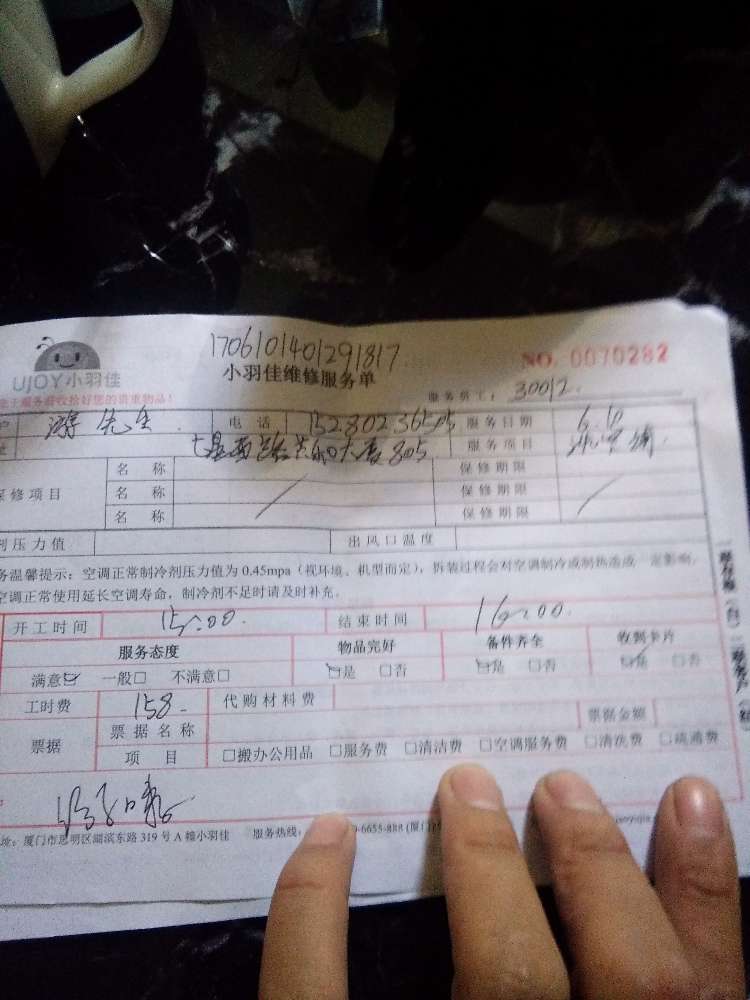 1706101401291817
UJOY小羽佳
小羽佳维修服务单
NO. 0070282
服务员工: 30012
于服务前收拾好您的贵重物品!
户 先生 电话 15280236505 服务日期 6.10
址 805 服务项目
保修项目 名称 / 保修期限 /
名称 保修期限
名称 保修期限
剂压力值 出风口温度
务温馨提示：空调正常制冷剂压力值为0.45mpa（视环境、机型而定），拆装过程会对空调制冷或制热造成一定影响，
空调正常使用延长空调寿命，制冷剂不足时请及时补充。
开工时间 15:00 结束时间 16:00
服务态度 物品完好 备件齐全 收到卡片
满意☑ 一般□ 不满意□ ☑是 □否 ☑是 □否 ☑是 □否
工时费 158- 代购材料费
票据 票据名称 票据金额
项目 □搬办公用品 □服务费 □清洁费 □空调服务费 □清洗费 □疏通费
址：厦门市思明区湖滨东路319号A幢小羽佳 服务热线： 0-6655-888 (厦门)